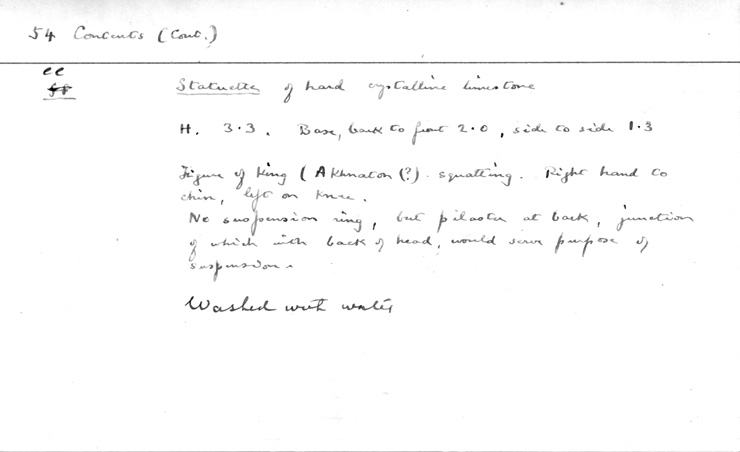 54 Contents (Cont.)
ee
ff
Statuette of hard crystalline limestone
H. 3.3. Base, back to front 2.0, side to side 1.3
Figure of King (Akhnaton (?). squatting. Right hand to
chin, left on knee.
No suspension ring, but pilaster at back, junction
of which with back of head, would serve purpose of
suspension.
Washed with water